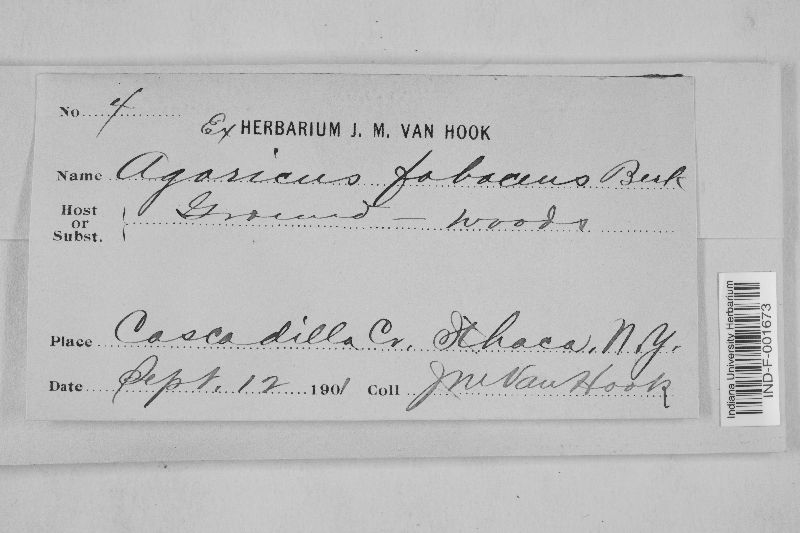 No. 4
Ex HERBARIUM J. M. VAN HOOK
Name Agaricus fabaceus Berk
Host or Subst. Ground – woods
Place Cascadilla Cr. Ithaca, N.Y.
Date Sept. 12 1901 Coll J M Van Hook
Indiana University Herbarium
IND-F-001673